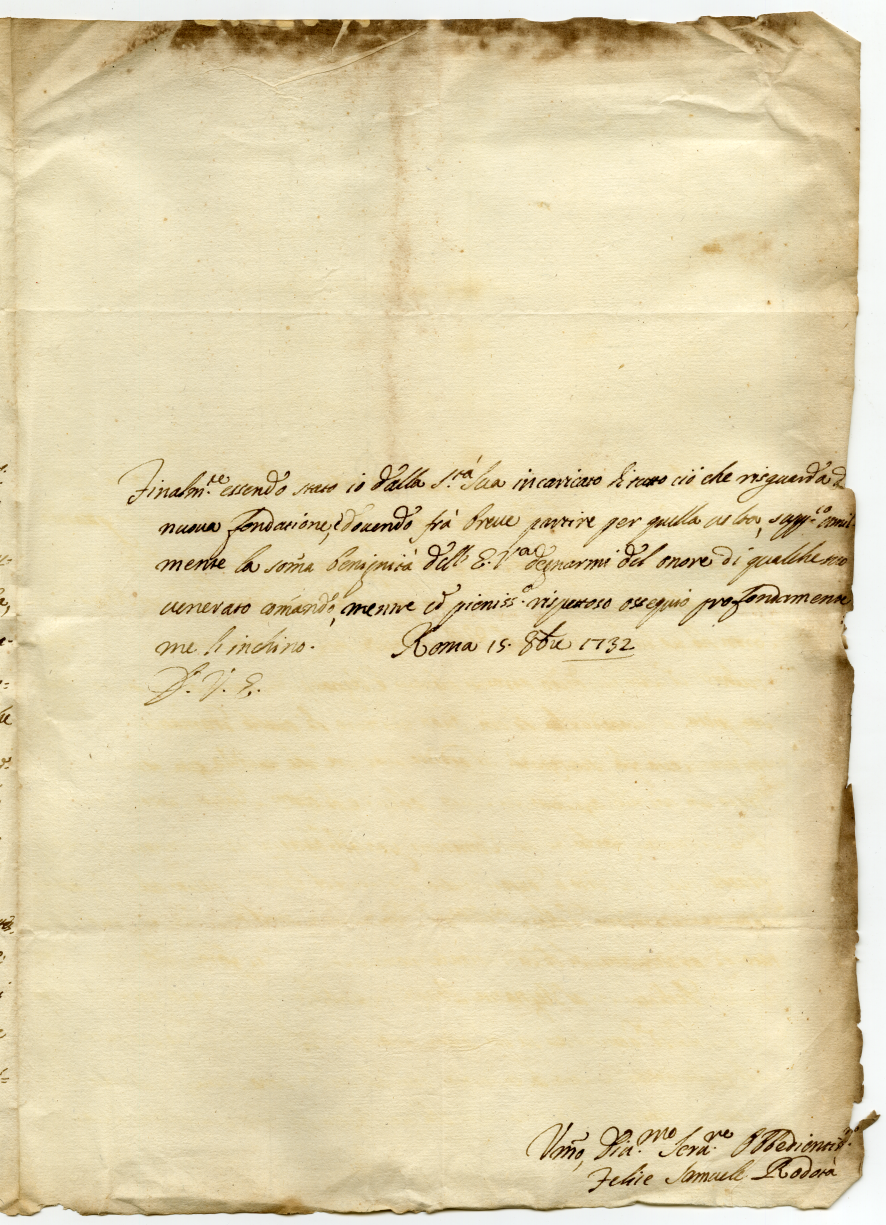 Finalm.te essendo stato io dalla S.tà Sua incaricato di tutto ciò che risguarda
nuova fondazione, e dovendo frà breve partire per quella volta, supp.co umil-
mente la som̃a benignità dell' E. V.ra degnarmi del onore di qualche suo
venerato com̃ando, mentre cõ pieniss.o rispettoso ossequio profondamente
me l'inchino. Roma 15. 8bre 1732
D. V. E.
Vm̃o, Div.mo Serv.re Obbedientis.mo
Felice Samuele Rodotà